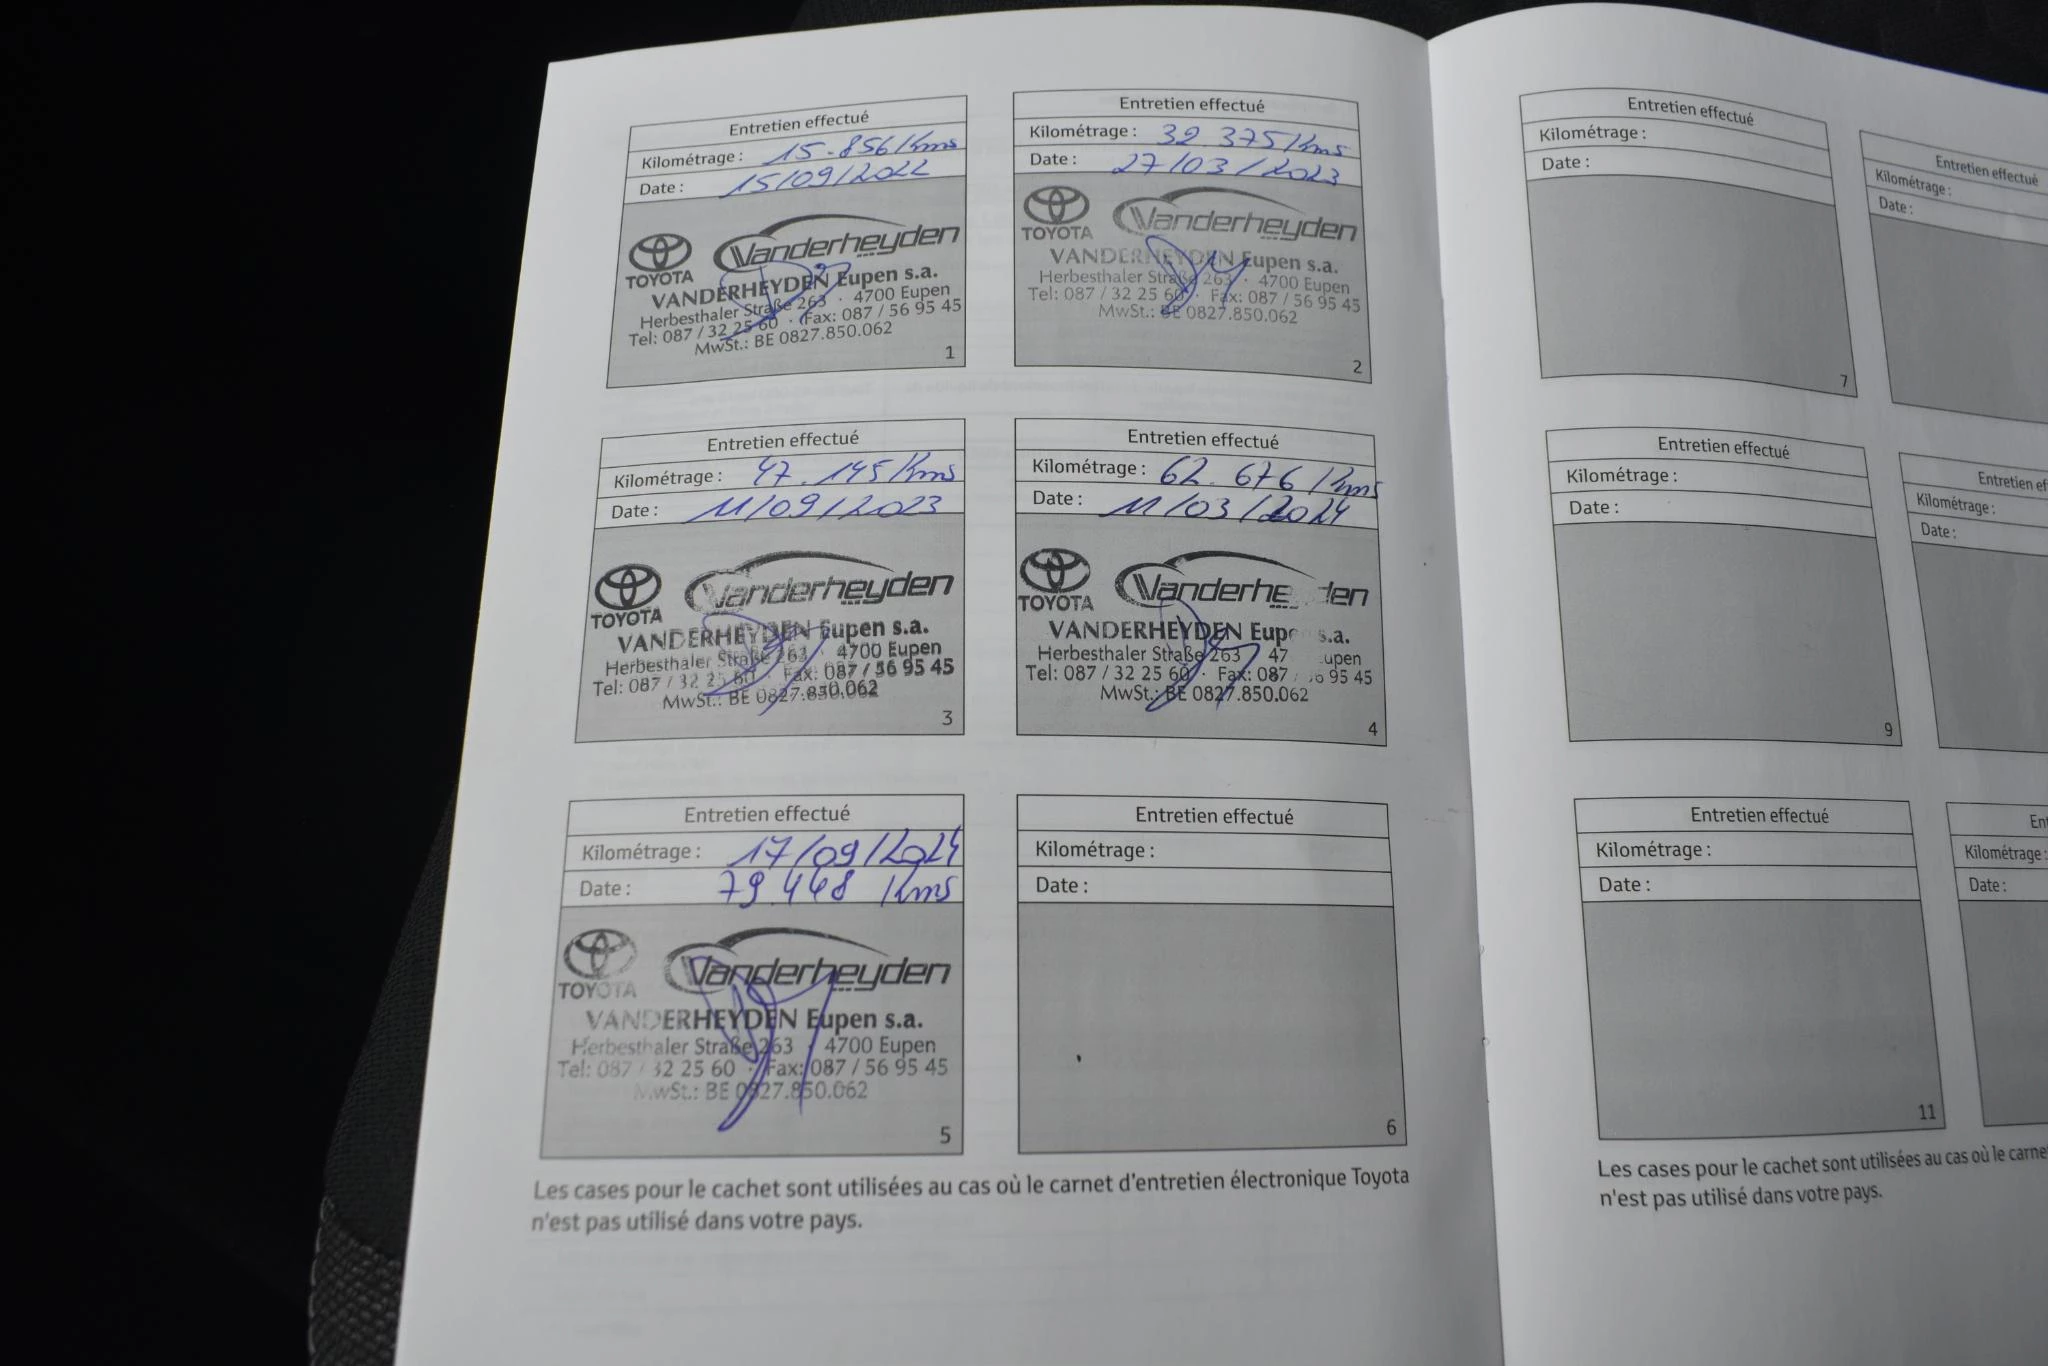 Entretien effectué
Kilométrage : 15.856 Kms
Date : 15/09/2022
Vanderheyden
TOYOTA
VANDERHEYDEN Eupen s.a.
Herbesthaler Straße 263 · 4700 Eupen
Tel: 087 / 32 25 60 · Fax: 087 / 56 95 45
MwSt.: BE 0827.850.062
1
Entretien effectué
Kilométrage : 32.375 Kms
Date : 27/03/2023
Vanderheyden
TOYOTA
VANDERHEYDEN Eupen s.a.
Herbesthaler Straße 263 · 4700 Eupen
Tel: 087 / 32 25 60 · Fax: 087 / 56 95 45
MwSt.: BE 0827.850.062
2
Entretien effectué
Kilométrage : 47.145 Kms
Date : 11/09/2023
Vanderheyden
TOYOTA
VANDERHEYDEN Eupen s.a.
Herbesthaler Straße 263 · 4700 Eupen
Tel: 087 / 32 25 60 · Fax: 087 / 56 95 45
MwSt.: BE 0827.850.062
3
Entretien effectué
Kilométrage : 62.676 Kms
Date : 11/03/2024
Vanderheyden
TOYOTA
VANDERHEYDEN Eupen s.a.
Herbesthaler Straße 263 47 Eupen
Tel: 087 / 32 25 60 · Fax: 087 / 56 95 45
MwSt.: BE 0827.850.062
4
Entretien effectué
Kilométrage : 17/09/2024
Date : 79.448 Kms
Vanderheyden
TOYOTA
VANDERHEYDEN Eupen s.a.
Herbesthaler Straße 263 · 4700 Eupen
Tel: 087 / 32 25 60 · Fax: 087 / 56 95 45
MwSt.: BE 0827.850.062
5
Entretien effectué
Kilométrage :
Date :
6
Les cases pour le cachet sont utilisées au cas où le carnet d'entretien électronique Toyota
n'est pas utilisé dans votre pays.
Entretien effectué
Kilométrage :
Date :
7
Entretien effectué
Kilométrage :
Date :
Entretien effectué
Kilométrage :
Date :
9
Entretien ef
Kilométrage :
Date :
Entretien effectué
Kilométrage :
Date :
11
En
Kilométrage :
Date :
Les cases pour le cachet sont utilisées au cas où le carne
n'est pas utilisé dans votre pays.